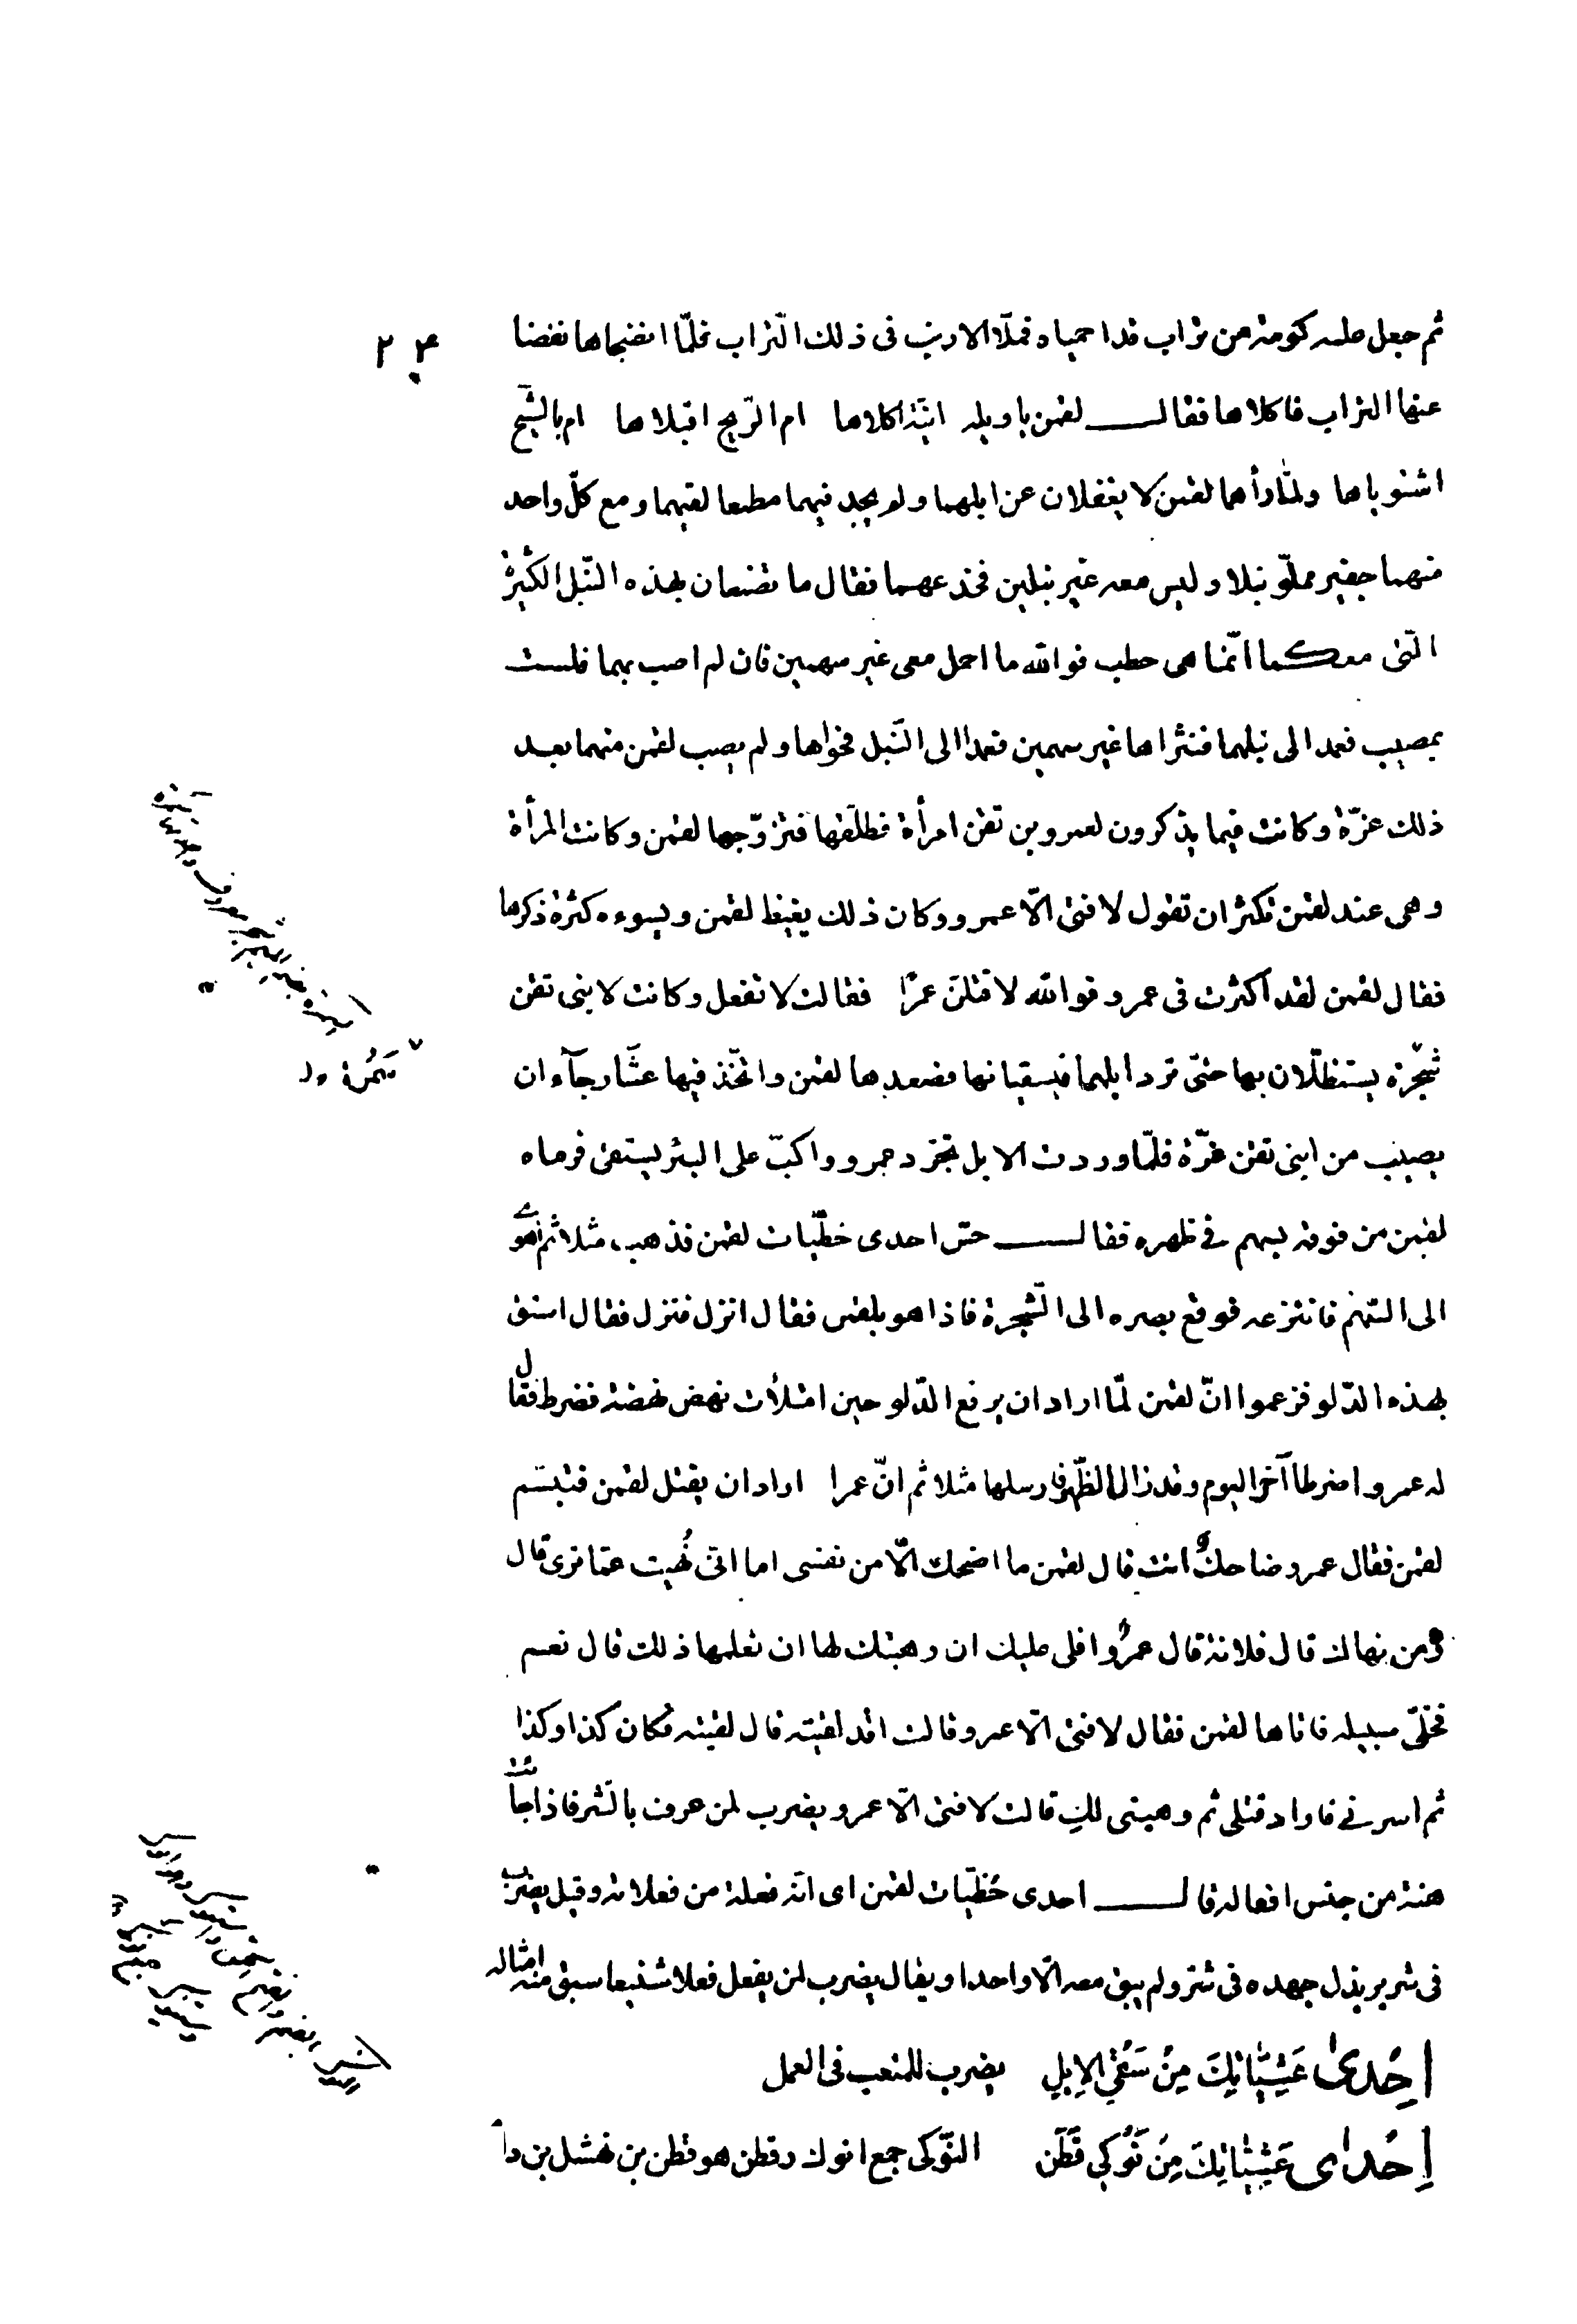 ثم جعل عليه كومة من تراب قد احمياه فملّا الارنب فى ذلك التراب فلمّا انضجاها نفضا
عنها التراب فاكلاها فقال لقمن يا ويله انيّة اكلاها ام الرّيح اقبلاها ام بالشّيح
اشتوياها ولمّا رأهما لقمن لا يغفلان عن ابلهما ولم يجد فيهما مطمعا لقيهما ومع كلّ واحد
منهما جفير مملوّ نبلا وليس معه غير نبلين فخدعهما فقال ما تصنعان بهذه النّبل الكثيرة
الّتى معكما انّما هى حطب فو الله ما احمل معى غير سهمين فان لم اصب بهما فلست
بمصيب فعمدا الى نبلهما فنثراها غير سهمين فعمد الى النّبل فحواها ولم يصب لقمن منهما بعد
ذلك غرّة وكانت فيما يذكرون لعمرو بن تقن امرأة فطلّقها فتزوّجها لقمن وكانت المرأة
وهى عند لقمن تكثر ان تقول لا فتى الّا عمرو وكان ذلك يغيظ لقمن ويسوءه كثرة ذكرها
فقال لقمن لقد اكثرت فى عمرو فو الله لاقتلنّ عمرًا فقالت لا تفعل وكانت لابنى تقن
شجرة يستظلّان بها حتّى ترد ابلهما فيسقيانها فصعدها لقمن واتّخذ فيها عشّا رجآء ان
يصيب من ابنى تقن غرّة فلمّا وردت الابل تجرّد عمرو واكبّ على البئر يستقى فرماه
لقمن من فوقه بسهم فى ظهره فقال حسّ احدى حظيّات لقمن فذهب مثلا ثم اهوى
الى السّهم فانتزعه فوقع بصره الى الشّجرة فاذا هو بلقمن فقال انزل فنزل فقال استق
بهذه الدّلو فزعموا انّ لقمن لمّا اراد ان يرفع الدّلو حين امتلأت نهض نهضة فضرط فقال
له عمرو اضرطا آخر اليوم وقد زال الظّهر فارسلها مثلا ثم انّ عمرا اراد ان يقتل لقمن فتبسّم
لقمن فقال عمرو ضاحكٌ انت قال لقمن ما اضحك الّا من نفسى اما انّى نُهيت عمّا ترى قال
ومن نهاك قال فلانة قال عمرٌو افلى عليك ان وهبتك لها ان تعلمها ذلك قال نعم
فخلّى سبيله فاتاها لقمن فقال لا فتى الّا عمرو قالت اقد لقيته قال لقيته فكان كذا وكذا
ثم اسرنى فاراد قتلى ثم وهبنى لكِ قالت لا فتى الّا عمرو يضرب لمن عرف بالشّر فاذا جآئت
هنة من جنس افعاله قال احدى حُظيّات لقمن اى انّه فعلة من فعلاته وقيل يضرب
فى شرير يذل جهده فى شرّ ولم يبق معه الّا واحدا ويقال يضرب لمن يفعل فعلا شنيعا سبق منه امثاله
اِحْدىٰ عَشِيّاتِكَ مِنْ سَقْىِ الاِبِلِ يضرب للمتعب فى العمل
اِحْدىٰ عَشِيّاتِكَ مِنْ نَوْكى قَطَنِ النّوكى جمع انوك وقطن هو قطن بن نهشل بن دا